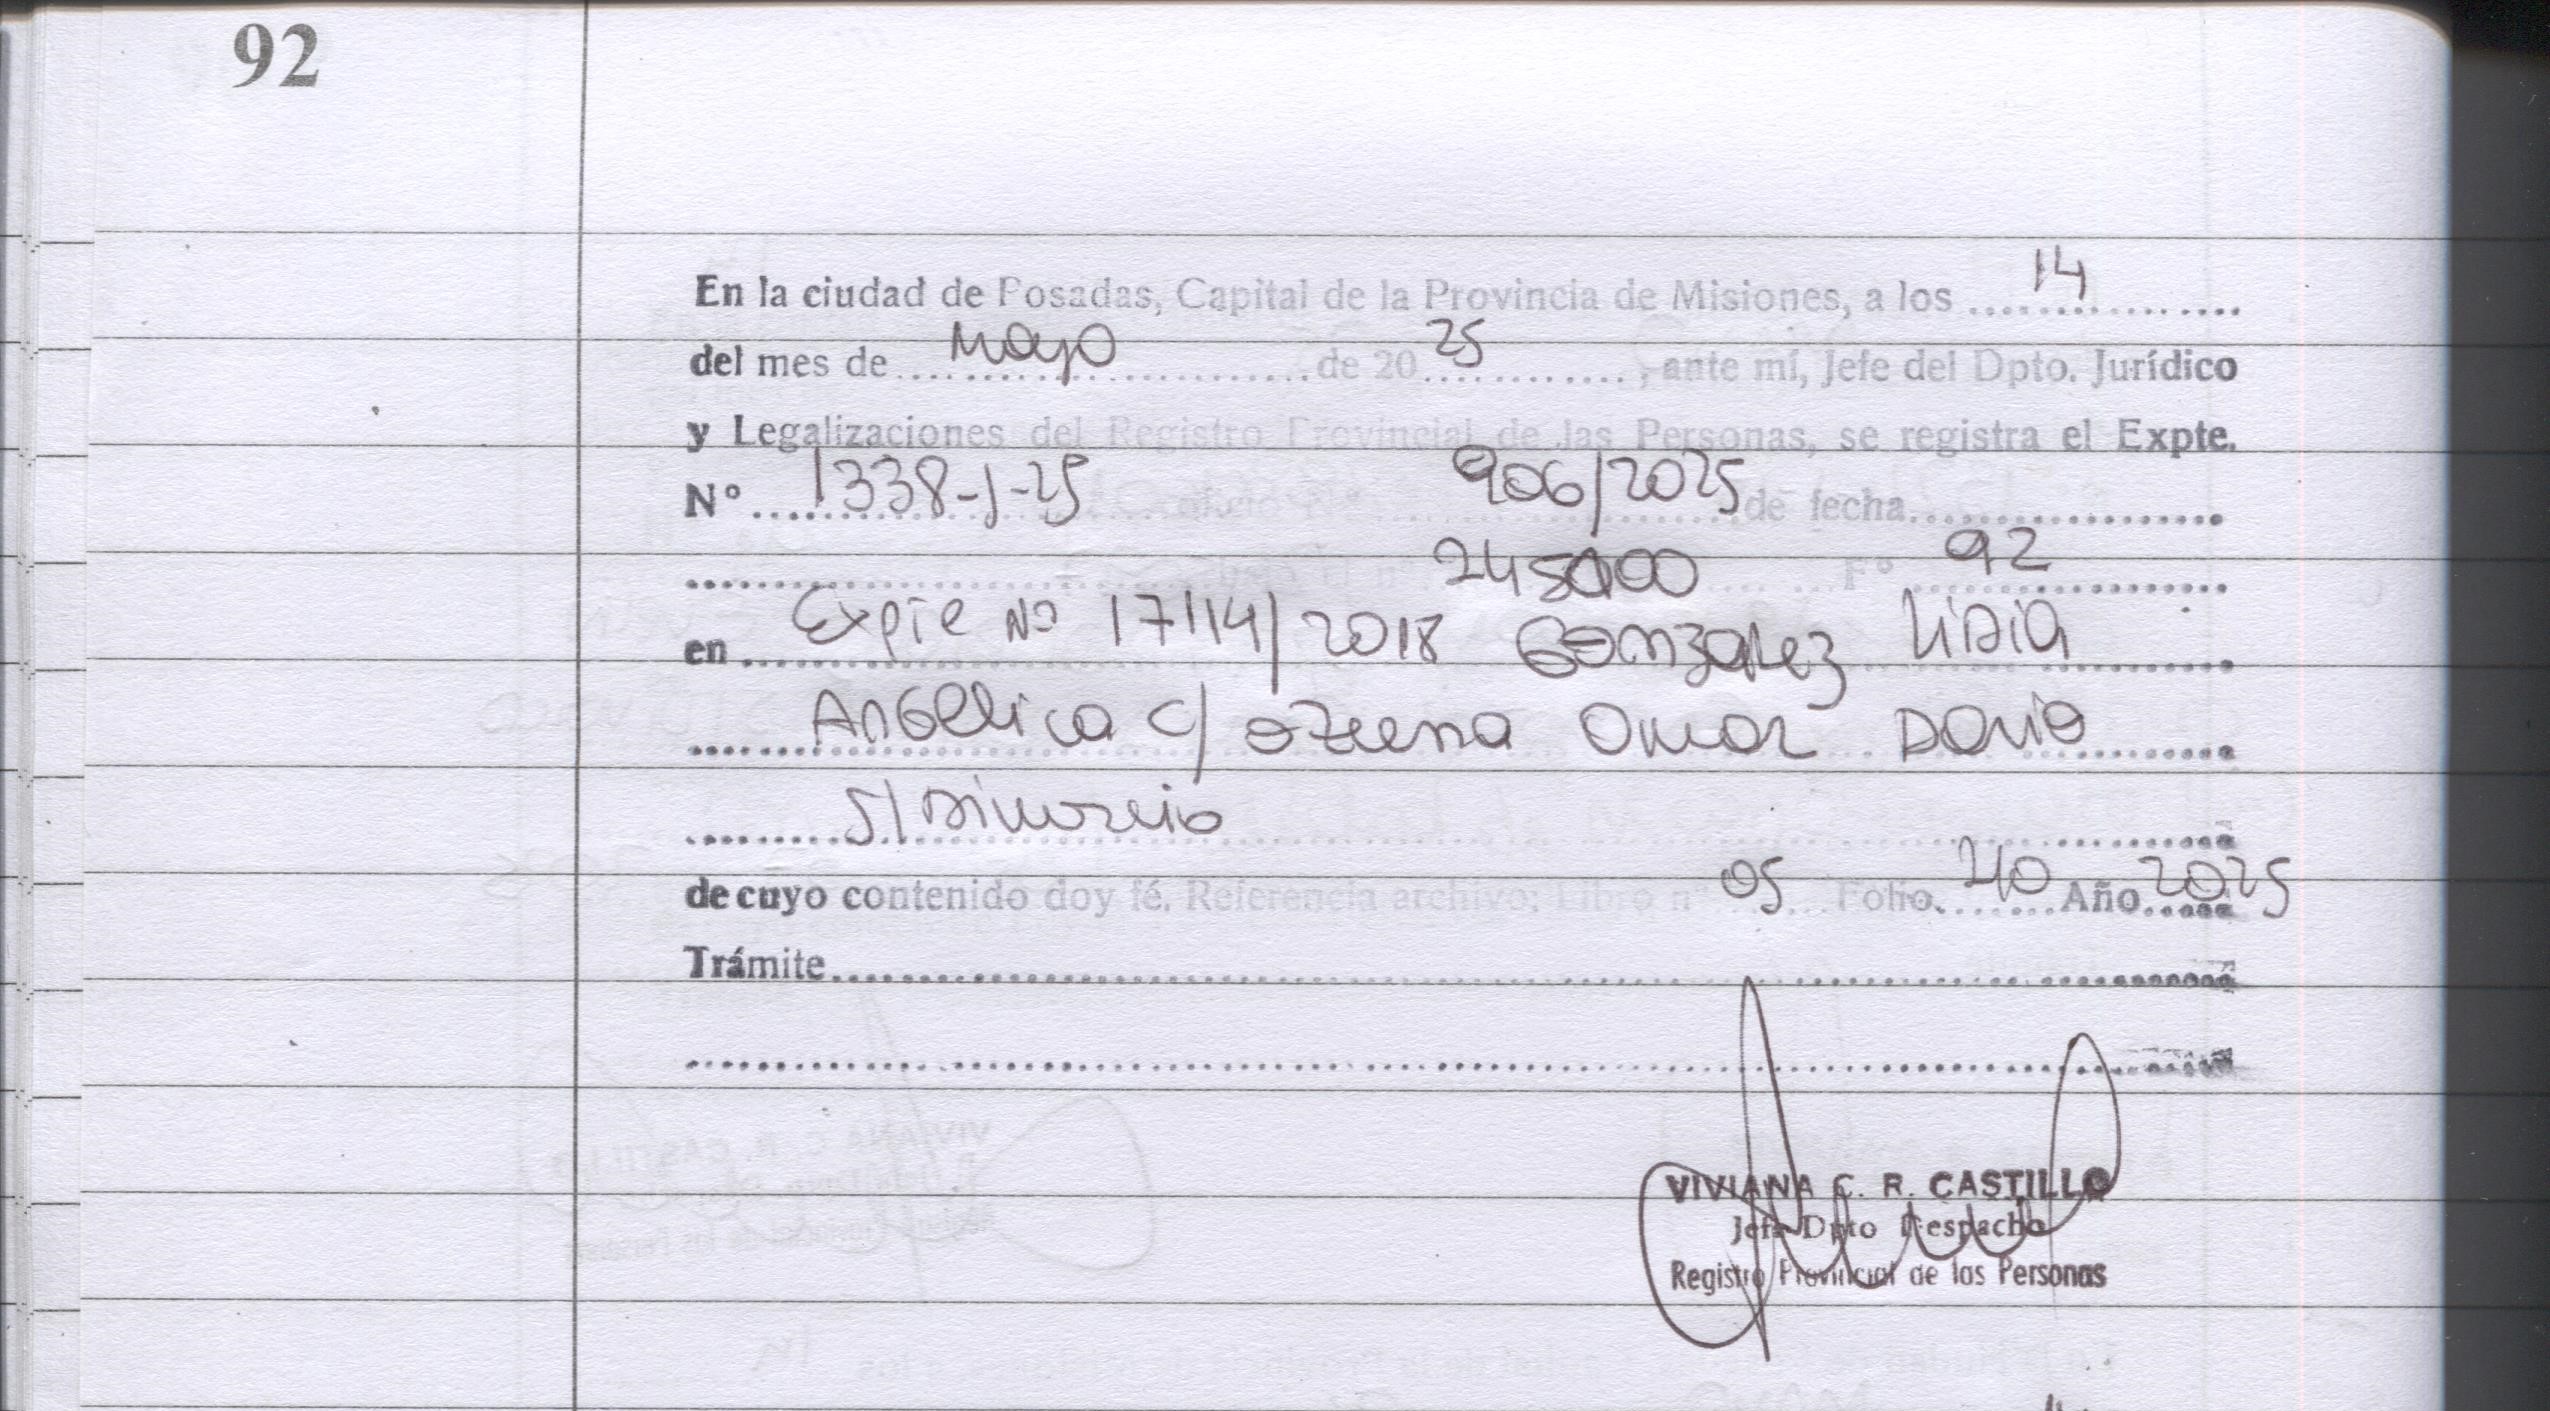 92
En la ciudad de Posadas, Capital de la Provincia de Misiones, a los 14
del mes de Mayo de 20 25, ante mí, Jefe del Dpto. Jurídico
y Legalizaciones del Registro Provincial de las Personas, se registra el Expte.
Nº 1338-J-25 906/2025 de fecha
Fº 92
en Expte Nº 17114/2018 Gonzalez Lidia
Angelica c/ Omar Dario
S/ Divorcio
de cuyo contenido doy fé. Referencia archivo: Libro nº 05 Folio 240 Año 2025
Trámite
VIVIANA C. R. CASTILLO
Jefa Dpto Despacho
Registro Provincial de las Personas